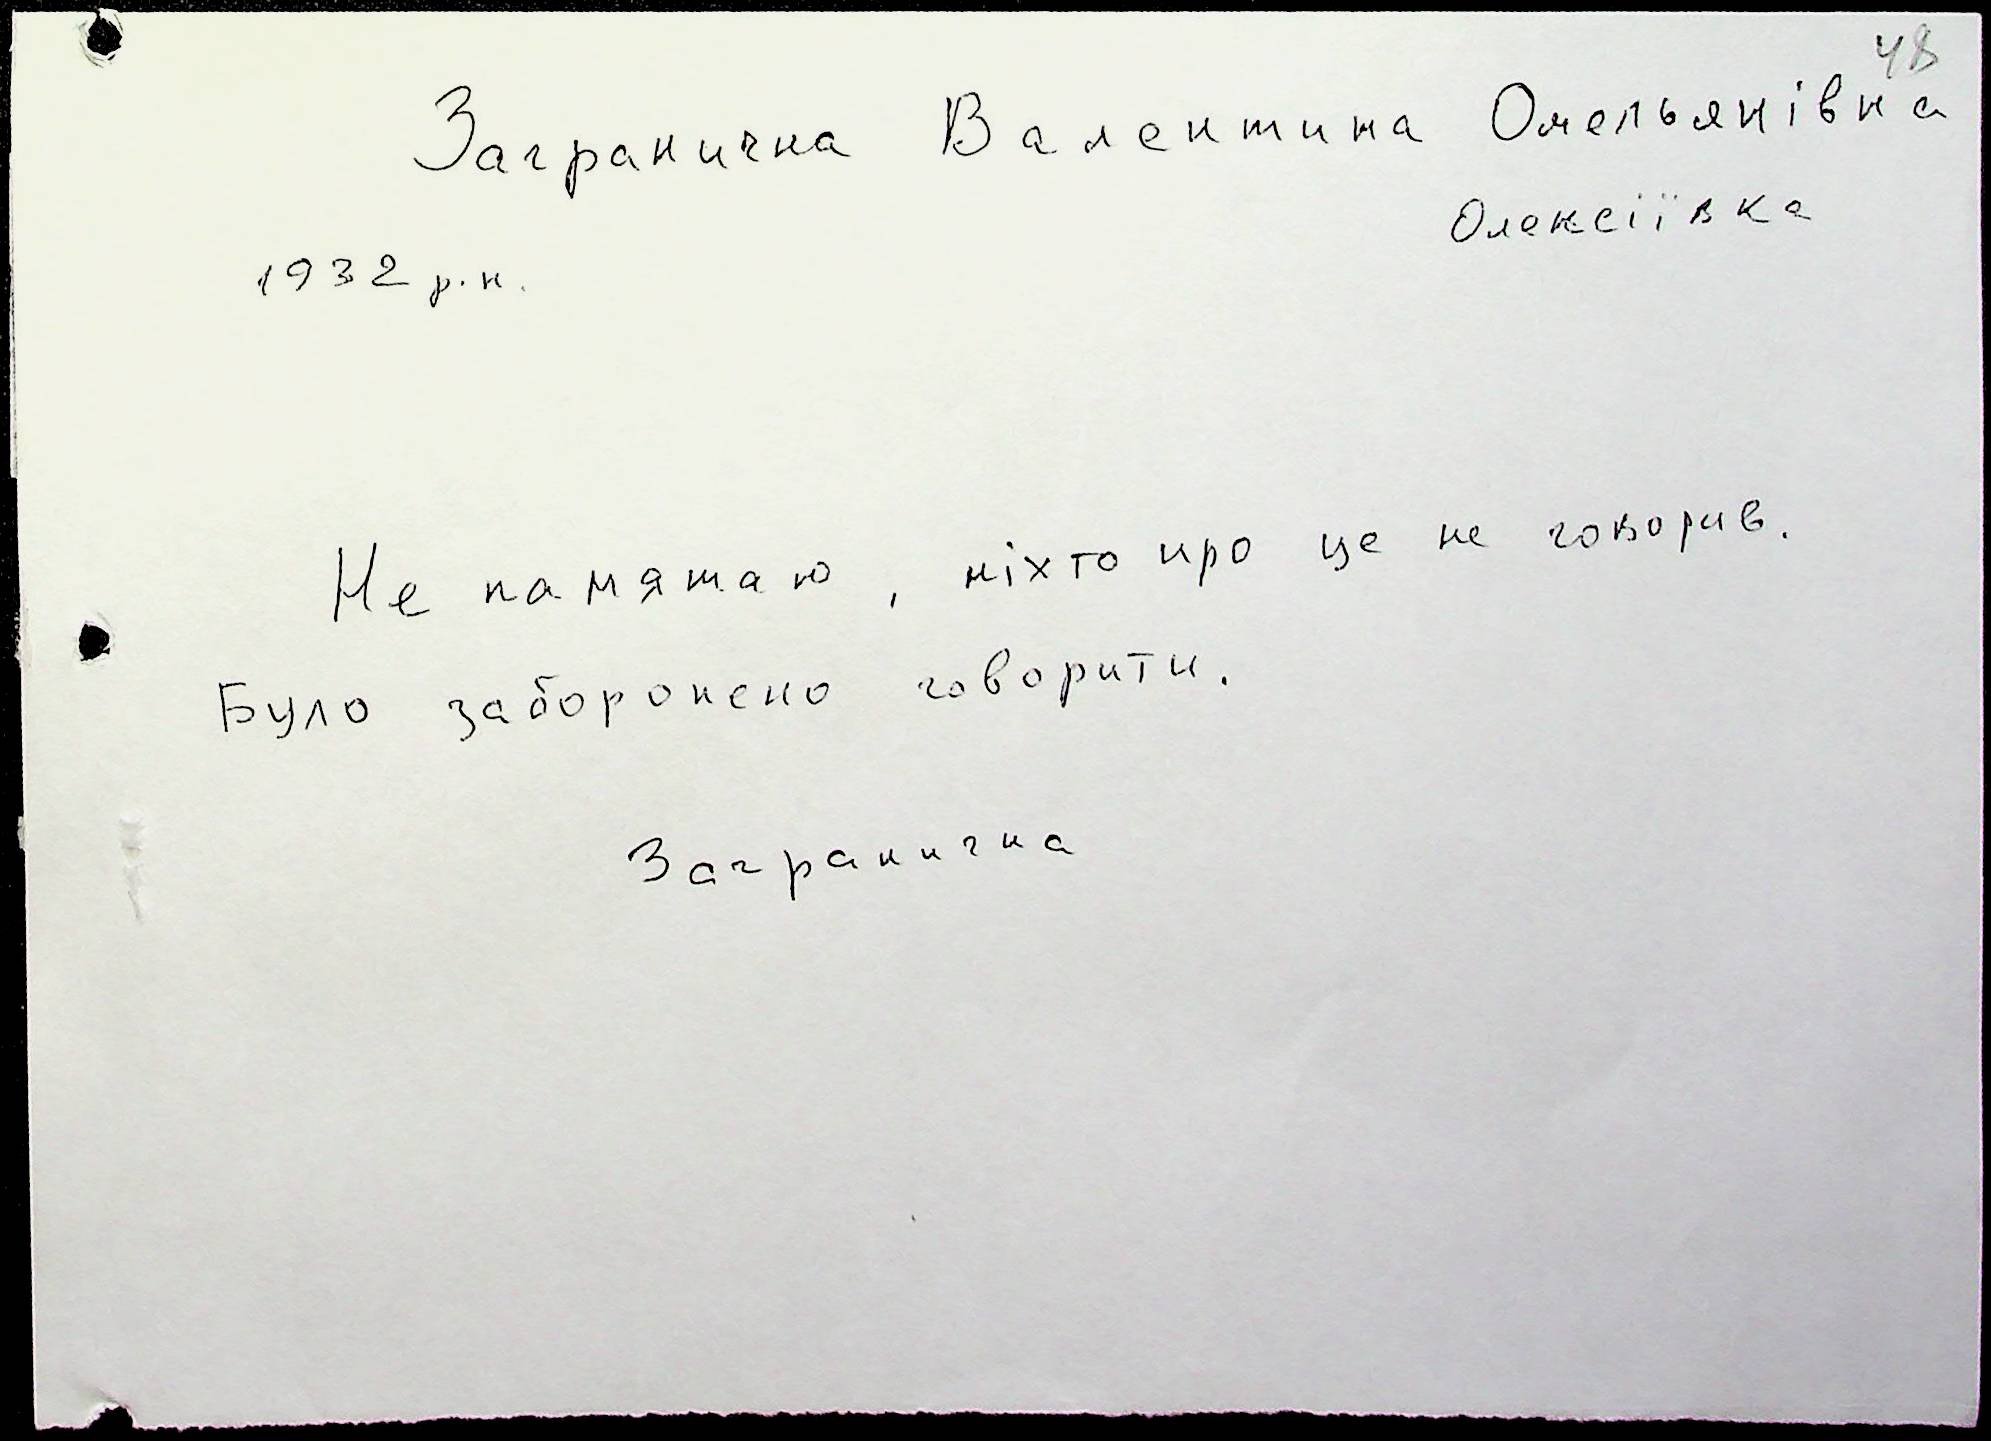 48
Загранична Валентина Омельянівна
Олексіївка
1932 р.н.
Не памятаю, ніхто про це не говорив.
Було заборонено говорити.
Загранична